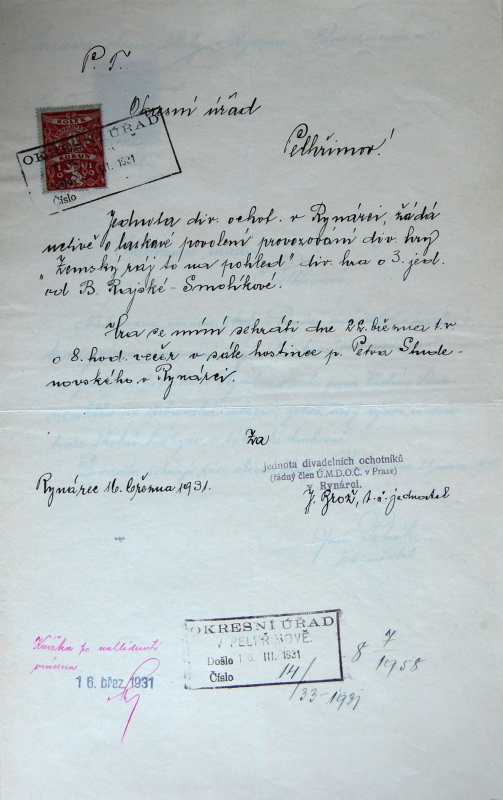 P. T.
Okresní úřad
Pelhřimov!
KOLEK
KORUN
OKRESNÍ ÚŘAD
III. 1931
Číslo
Jednota div. ochot. v Rynárci, žádá
uctivě o laskavé povolení provozování div. hry
„Zemský ráj to na pohled" div. hra o 3. jed.
od B. Rajské-Smolíkové.
Hra se míní sehráti dne 22. března t.r.
o 8. hod. večer v sále hostince p. Petra Stude-
novského v Rynárci.
Za
jednota divadelních ochotníků
(řádný člen Ú.M.D.O.Č. v Praze)
v Rynárci.
Rynárec 16. března 1931.
J. Brož, t.č. jednatel
Knížka po nahlédnutí
vrácena
16. břez. 1931
OKRESNÍ ÚŘAD
V PELHŘIMOVĚ.
Došlo 16. III. 1931
Číslo 14/
/33-1931
8 7
1958